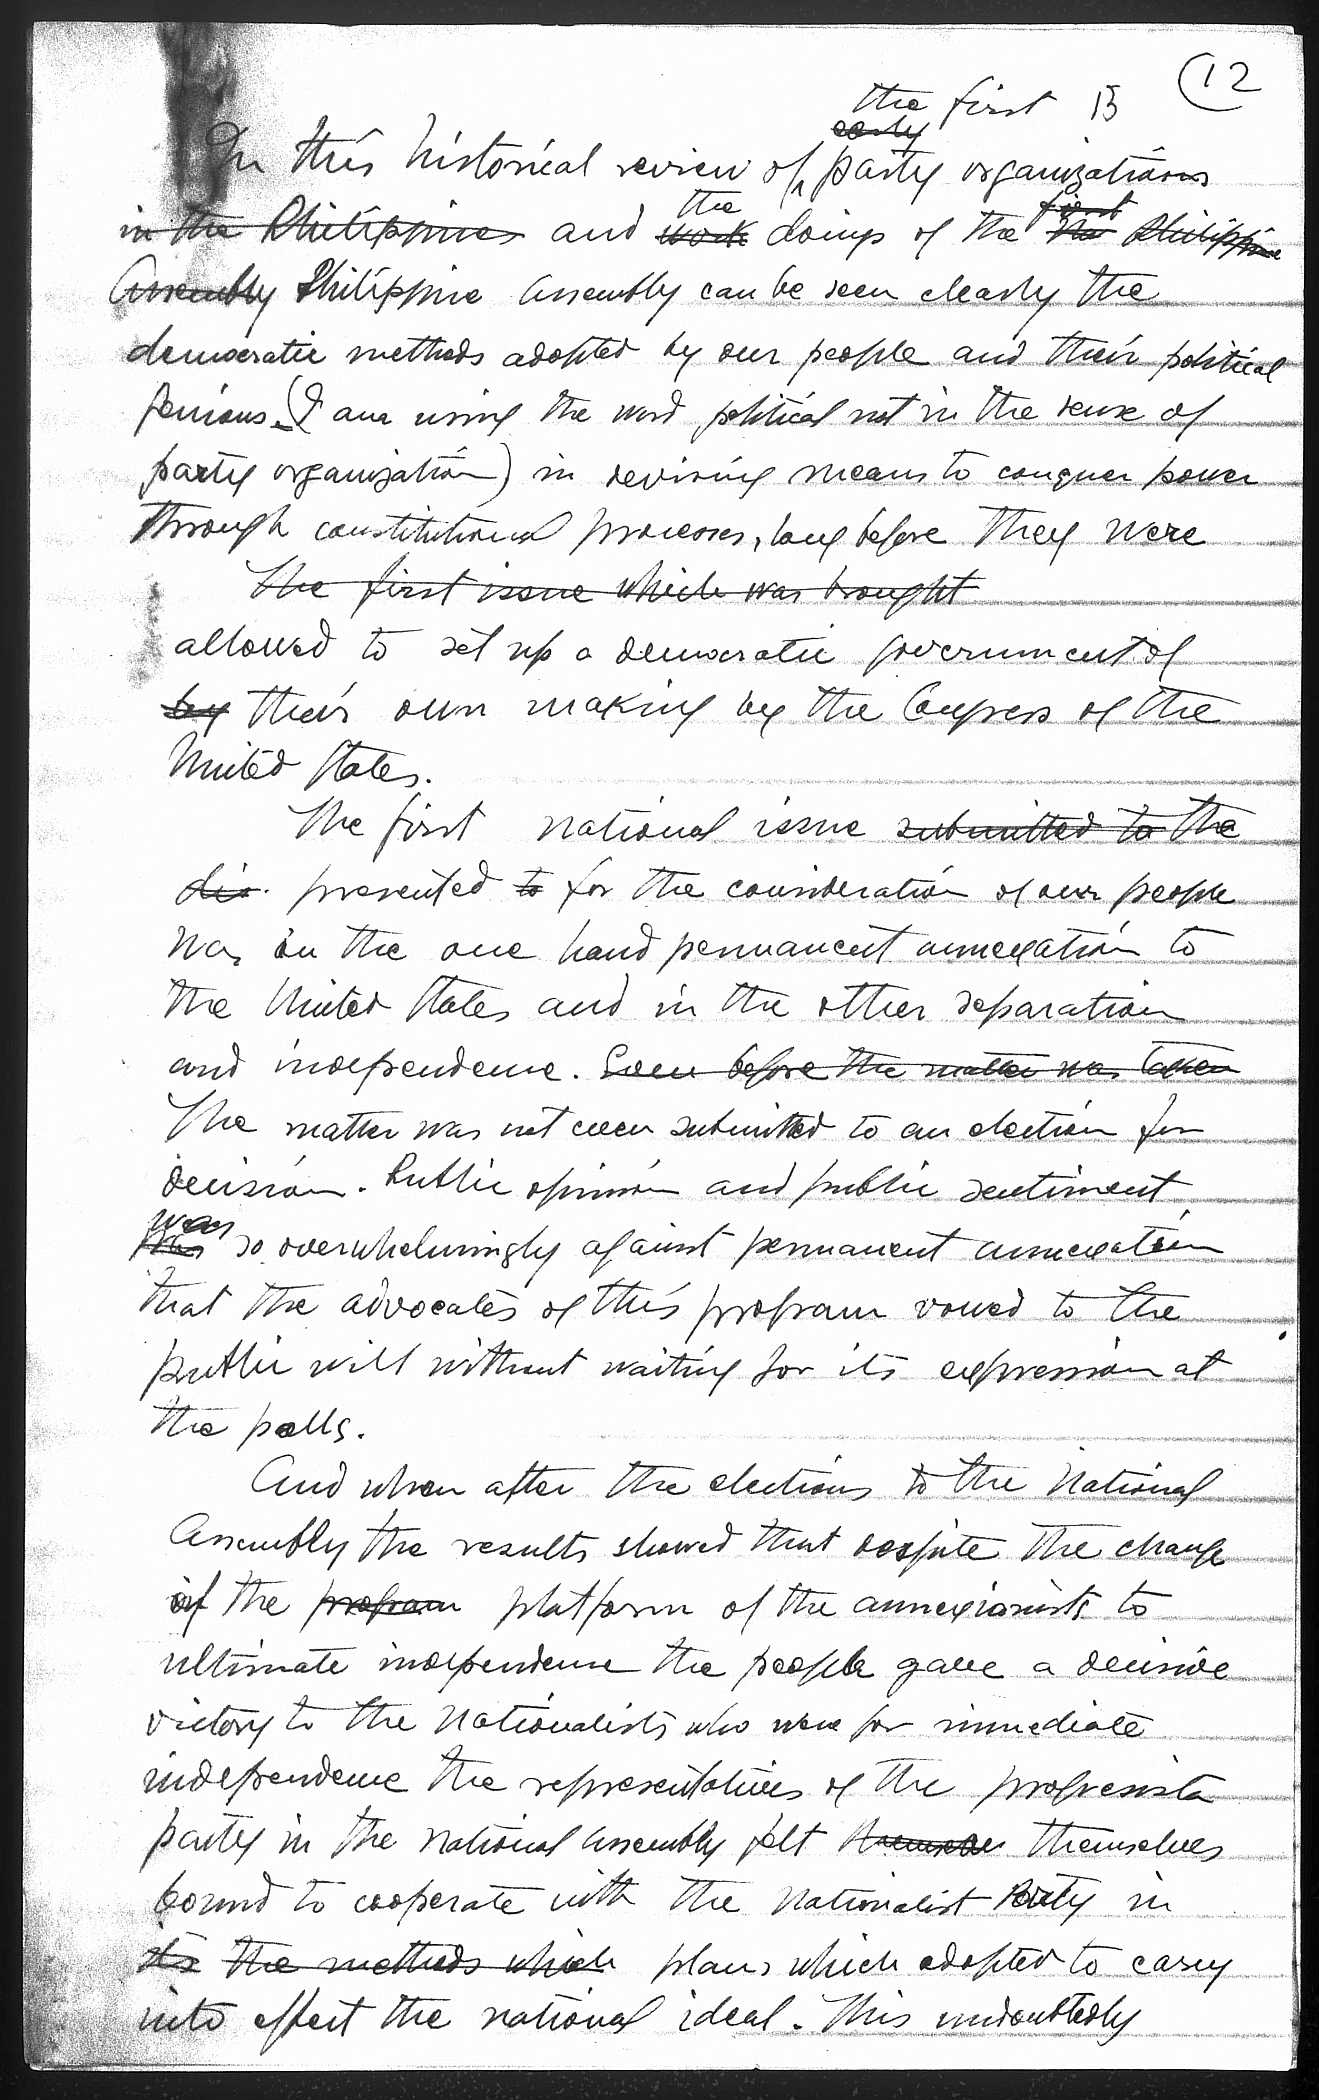 (12
the first 13
early
In this historical review of party organizations
the first
in the Philippines and work doings of the the Philippine
Assembly Philippine Assembly can be seen clearly the
democratic methods adopted by our people and their political
genious. (I am using the word political not in the sense of
party organization) in devising means to conquer power
through constitutional processes, long before they were
The first issue which was brought
allowed to set up a democratic government of
by their own making by the Congress of the
United States.
The first national issue submitted to the
dis. presented to for the consideration of our people
was in the one hand permanent annexation to
the United States and in the other separation
and independence. Even before the matter was taken
The matter was not even submitted to an election for
decision. Public opinion and public sentiment
was
was so overwhelmingly against permanent annexation
that the advocates of this program vowed to the
public will without waiting for its expression at
the polls.
And when after the elections to the National
Assembly the results showed that despite the change
of the program platform of the annexionists to
ultimate independence the people gave a decisive
victory to the Nationalists who were for immediate
independence the representatives of the progresista
party in the National Assembly felt themselves themselves
bound to cooperate with the Nationalist Party in
its the methods which plans which adopted to carry
into effect the national ideal. This undoubtedly